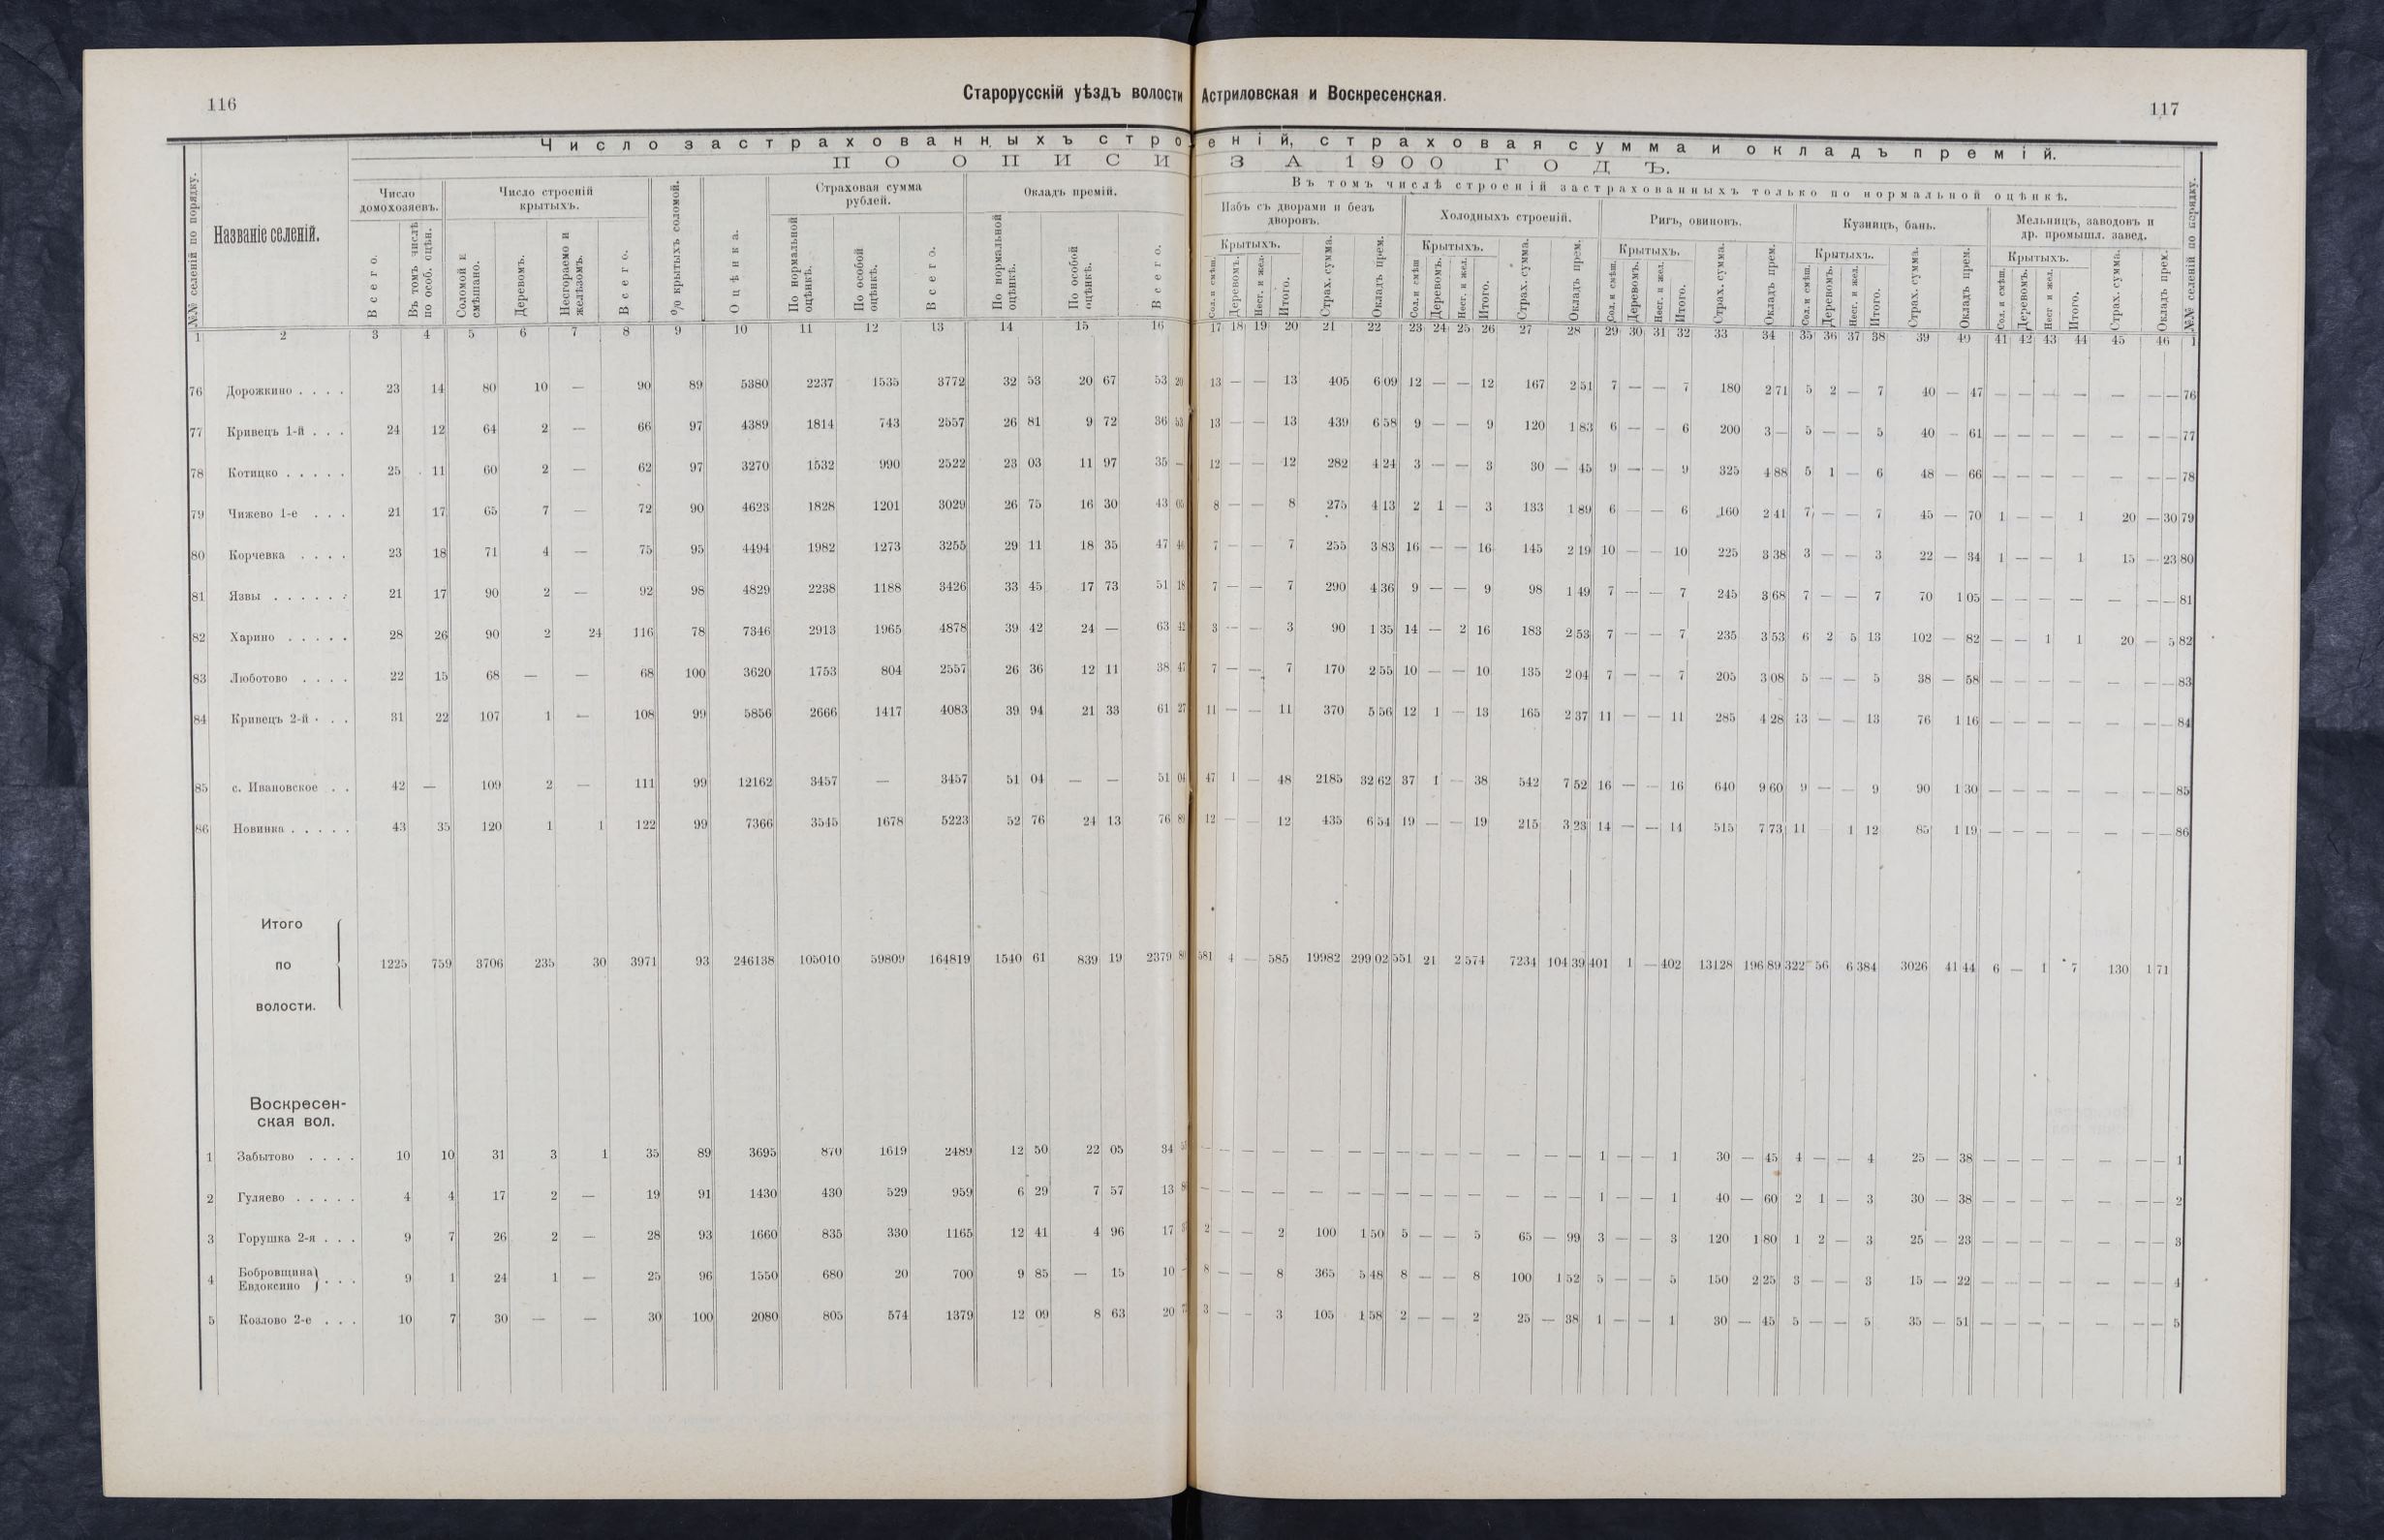 116
Старорусскій уѣздъ волости Астриловская и Воскресенская.
117
Число застрахованныхъ строеній, страховая сумма и окладъ премій.
ПО ОПИСИ ЗА 1900 ГОДЪ.
№№ селеній по порядку.
Названіе селеній.
Число домохозяевъ.
Всего.
Въ томъ числѣ по особ. оцѣн.
Число строеній крытыхъ.
Соломой и смѣшано.
Деревомъ.
Несгораемо и желѣзомъ.
Всего.
% крытыхъ соломой.
Оцѣнка.
Страховая сумма рублей.
По нормальной оцѣнкѣ.
По особой оцѣнкѣ.
Всего.
Окладъ премій.
По нормальной оцѣнкѣ.
По особой оцѣнкѣ.
Всего.
Въ томъ числѣ строеній застрахованныхъ только по нормальной оцѣнкѣ.
Избъ съ дворами и безъ дворовъ.
Крытыхъ.
Сол. и смѣш.
Деревомъ.
Несг. и жел.
Итого.
Страх. сумма.
Окладъ прем.
Холодныхъ строеній.
Крытыхъ.
Сол. и смѣш
Деревомъ.
Несг. и жел.
Итого.
Страх. сумма.
Окладъ прем.
Ригъ, овиновъ.
Крытыхъ.
Сол. и смѣш.
Деревомъ.
Несг. и жел.
Итого.
Страх. сумма.
Окладъ прем.
Кузницъ, бань.
Крытыхъ.
Сол. и смѣш.
Деревомъ.
Несг. и жел.
Итого.
Страх. сумма.
Окладъ прем.
Мельницъ, заводовъ и др. промышл. завед.
Крытыхъ.
Сол. и смѣш.
Деревомъ.
Несг и жел.
Итого.
Страх. сумма.
Окладъ прем.
№№ селеній по порядку.
1 2 3 4 5 6 7 8 9 10 11 12 13 14 15 16 17 18 19 20 21 22 23 24 25 26 27 28 29 30 31 32 33 34 35 36 37 38 39 40 41 42 43 44 45 46 1
76 Дорожкино . . . . 23 14 80 10 — 90 89 5380 2237 1535 3772 32 53 20 67 53 20 13 — — 13 405 6 09 12 — — 12 167 2 51 7 — — 7 180 2 71 5 2 — 7 40 — 47 — — — — — — — 76
77 Кривецъ 1-й . . . 24 12 64 2 — 66 97 4389 1814 743 2557 26 81 9 72 36 53 13 — — 13 439 6 58 9 — — 9 120 1 83 6 — — 6 200 3 — 5 — — 5 40 — 61 — — — — — — — 77
78 Котицко . . . . . 25 11 60 2 — 62 97 3270 1532 990 2522 23 03 11 97 35 — 12 — — 12 282 4 24 3 — — 3 30 — 45 9 — — 9 325 4 88 5 1 — 6 48 — 66 — — — — — — — 78
79 Чижево 1-е . . . 21 17 65 7 — 72 90 4623 1828 1201 3029 26 75 16 30 43 05 8 — — 8 275 4 13 2 1 — 3 133 1 89 6 — — 6 160 2 41 7 — — 7 45 — 70 1 — — 1 20 — 30 79
80 Корчевка . . . . 23 18 71 4 — 75 95 4494 1982 1273 3255 29 11 18 35 47 46 7 — — 7 255 3 83 16 — — 16 145 2 19 10 — — 10 225 3 38 3 — — 3 22 — 34 1 — — 1 15 — 23 80
81 Язвы . . . . . . 21 17 90 2 — 92 98 4829 2238 1188 3426 33 45 17 73 51 18 7 — — 7 290 4 36 9 — — 9 98 1 49 7 — — 7 245 3 68 7 — — 7 70 1 05 — — — — — — — 81
82 Харино . . . . . 28 26 90 2 24 116 78 7346 2913 1965 4878 39 42 24 — 63 42 3 — — 3 90 1 35 14 — 2 16 183 2 53 7 — — 7 235 3 53 6 2 5 13 102 — 82 — — 1 1 20 — 5 82
83 Люботово . . . . 22 15 68 — — 68 100 3620 1753 804 2557 26 36 12 11 38 47 7 — — 7 170 2 55 10 — — 10 135 2 04 7 — — 7 205 3 08 5 — — 5 38 — 58 — — — — — — — 83
84 Кривецъ 2-й . . . 31 22 107 1 — 108 99 5856 2666 1417 4083 39 94 21 33 61 27 11 — — 11 370 5 56 12 1 — 13 165 2 37 11 — — 11 285 4 28 13 — — 13 76 1 16 — — — — — — — 84
85 с. Ивановское . . 42 — 109 2 — 111 99 12162 3457 — 3457 51 04 — — 51 04 47 1 — 48 2185 32 62 37 1 — 38 542 7 52 16 — — 16 640 9 60 9 — — 9 90 1 30 — — — — — — — 85
86 Новинка . . . . . 43 35 120 1 1 122 99 7366 3545 1678 5223 52 76 24 13 76 89 12 — — 12 435 6 54 19 — — 19 215 3 23 14 — — 14 515 7 73 11 1 12 85 1 19 — — — — — — — 86
Итого
по 1225 759 3706 235 30 3971 93 246138 105010 59809 164819 1540 61 839 19 2379 80 581 4 — 585 19982 299 02 551 21 2 574 7234 104 39 401 1 — 402 13128 196 89 322 56 6 384 3026 41 44 6 — 1 7 130 1 71
волости.
Воскресен-
ская вол.
1 Забытово . . . . 10 10 31 3 1 35 89 3695 870 1619 2489 12 50 22 05 34 — — — — — — — — — — — — — — 1 — — 1 30 — 45 4 — — 4 25 — 38 — — — — — — — 1
2 Гуляево . . . . . 4 4 17 2 — 19 91 1430 430 529 959 6 29 7 57 13 — — — — — — — — — — — — — — 1 — — 1 40 — 60 2 1 — 3 30 — 38 — — — — — — — 2
3 Горушка 2-я . . . 9 7 26 2 — 28 93 1660 835 330 1165 12 41 4 96 17 2 — — 2 100 1 50 5 — — 5 65 — 99 3 — — 3 120 1 80 1 2 — 3 25 — 23 — — — — — — — 3
4 Бобровщина Евдоксино } . . . 9 1 24 1 — 25 96 1550 680 20 700 9 85 — 15 10 — 8 — — 8 365 5 48 8 — — 8 100 1 52 5 — — 5 150 2 25 3 — — 3 15 — 22 — — — — — — — 4
5 Козлово 2-е . . . 10 7 30 — — 30 100 2080 805 574 1379 12 09 8 63 20 3 — — 3 105 1 58 2 — — 2 25 — 38 1 — — 1 30 — 45 5 — — 5 35 — 51 — — — — — — — 5